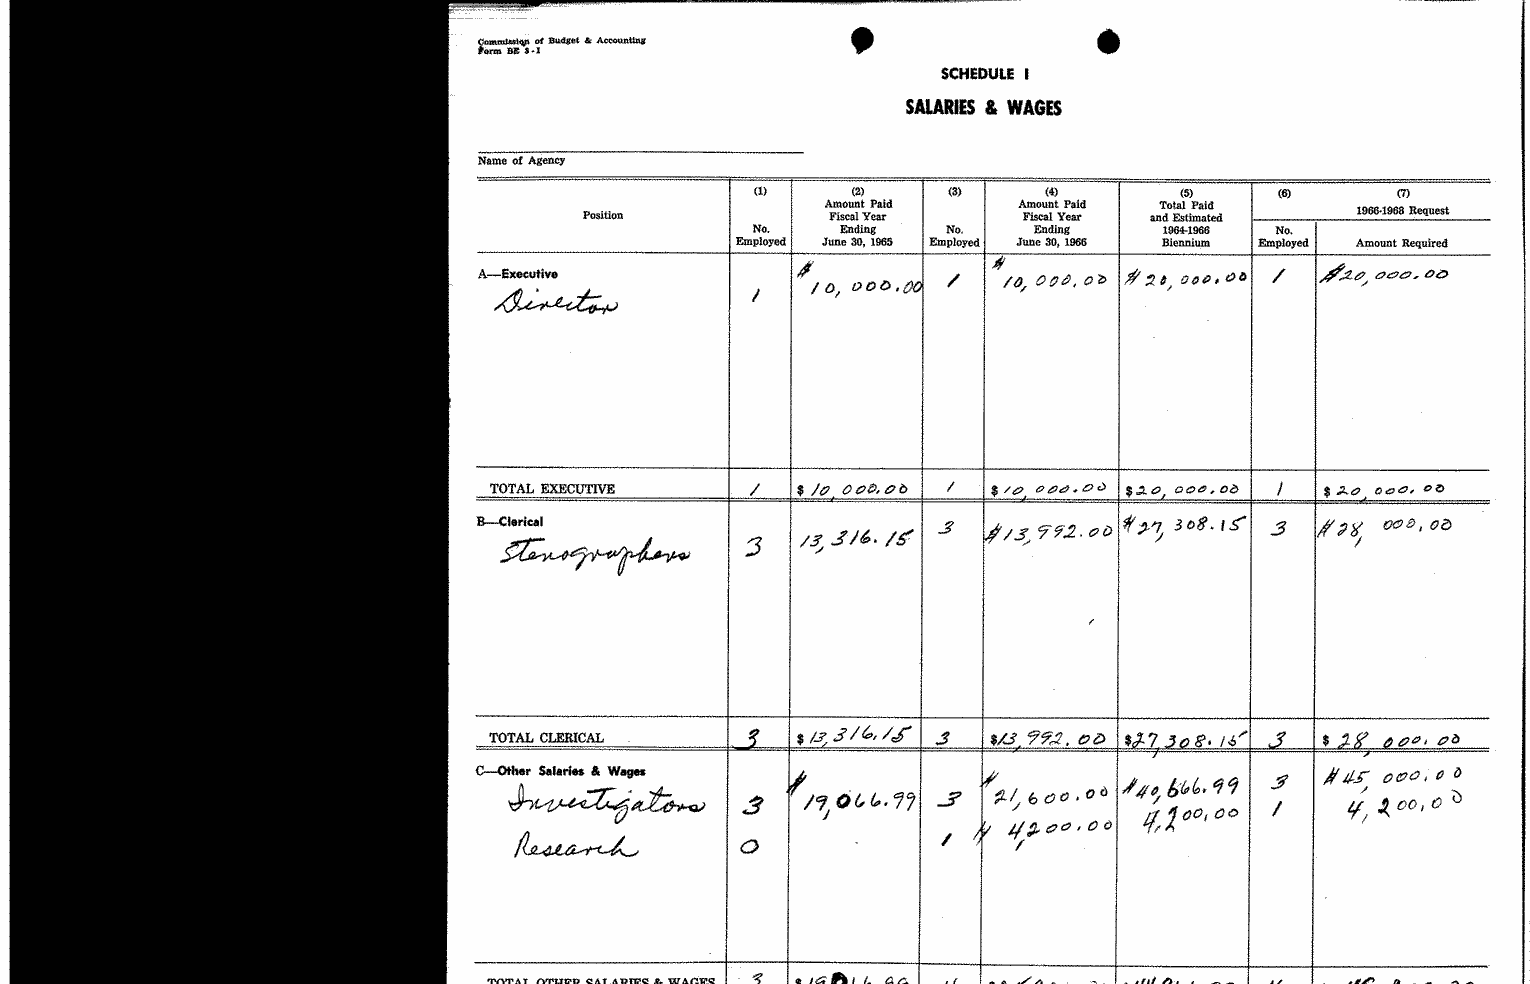 Commission of Budget & Accounting
Form BE 3-1
SCHEDULE I
SALARIES & WAGES
Name of Agency
Position
(1) No. Employed
(2) Amount Paid Fiscal Year Ending June 30, 1965
(3) No. Employed
(4) Amount Paid Fiscal Year Ending June 30, 1966
(5) Total Paid and Estimated 1964-1966 Biennium
(6) (7) 1966-1968 Request
No. Employed Amount Required
A—Executive
Director 1 $10,000.00 1 $10,000.00 $20,000.00 1 $20,000.00
TOTAL EXECUTIVE 1 $10,000.00 1 $10,000.00 $20,000.00 1 $20,000.00
B—Clerical
Stenographers 3 13,316.15 3 $13,992.00 $27,308.15 3 $28,000.00
TOTAL CLERICAL 3 $13,316.15 3 $13,992.00 $27,308.15 3 $28,000.00
C—Other Salaries & Wages
Investigators 3 $19,066.99 3 $21,600.00 $40,666.99 3 $45,000.00
Research 0 1 $4,200.00 4,200.00 1 4,200.00
TOTAL OTHER SALARIES & WAGES 3